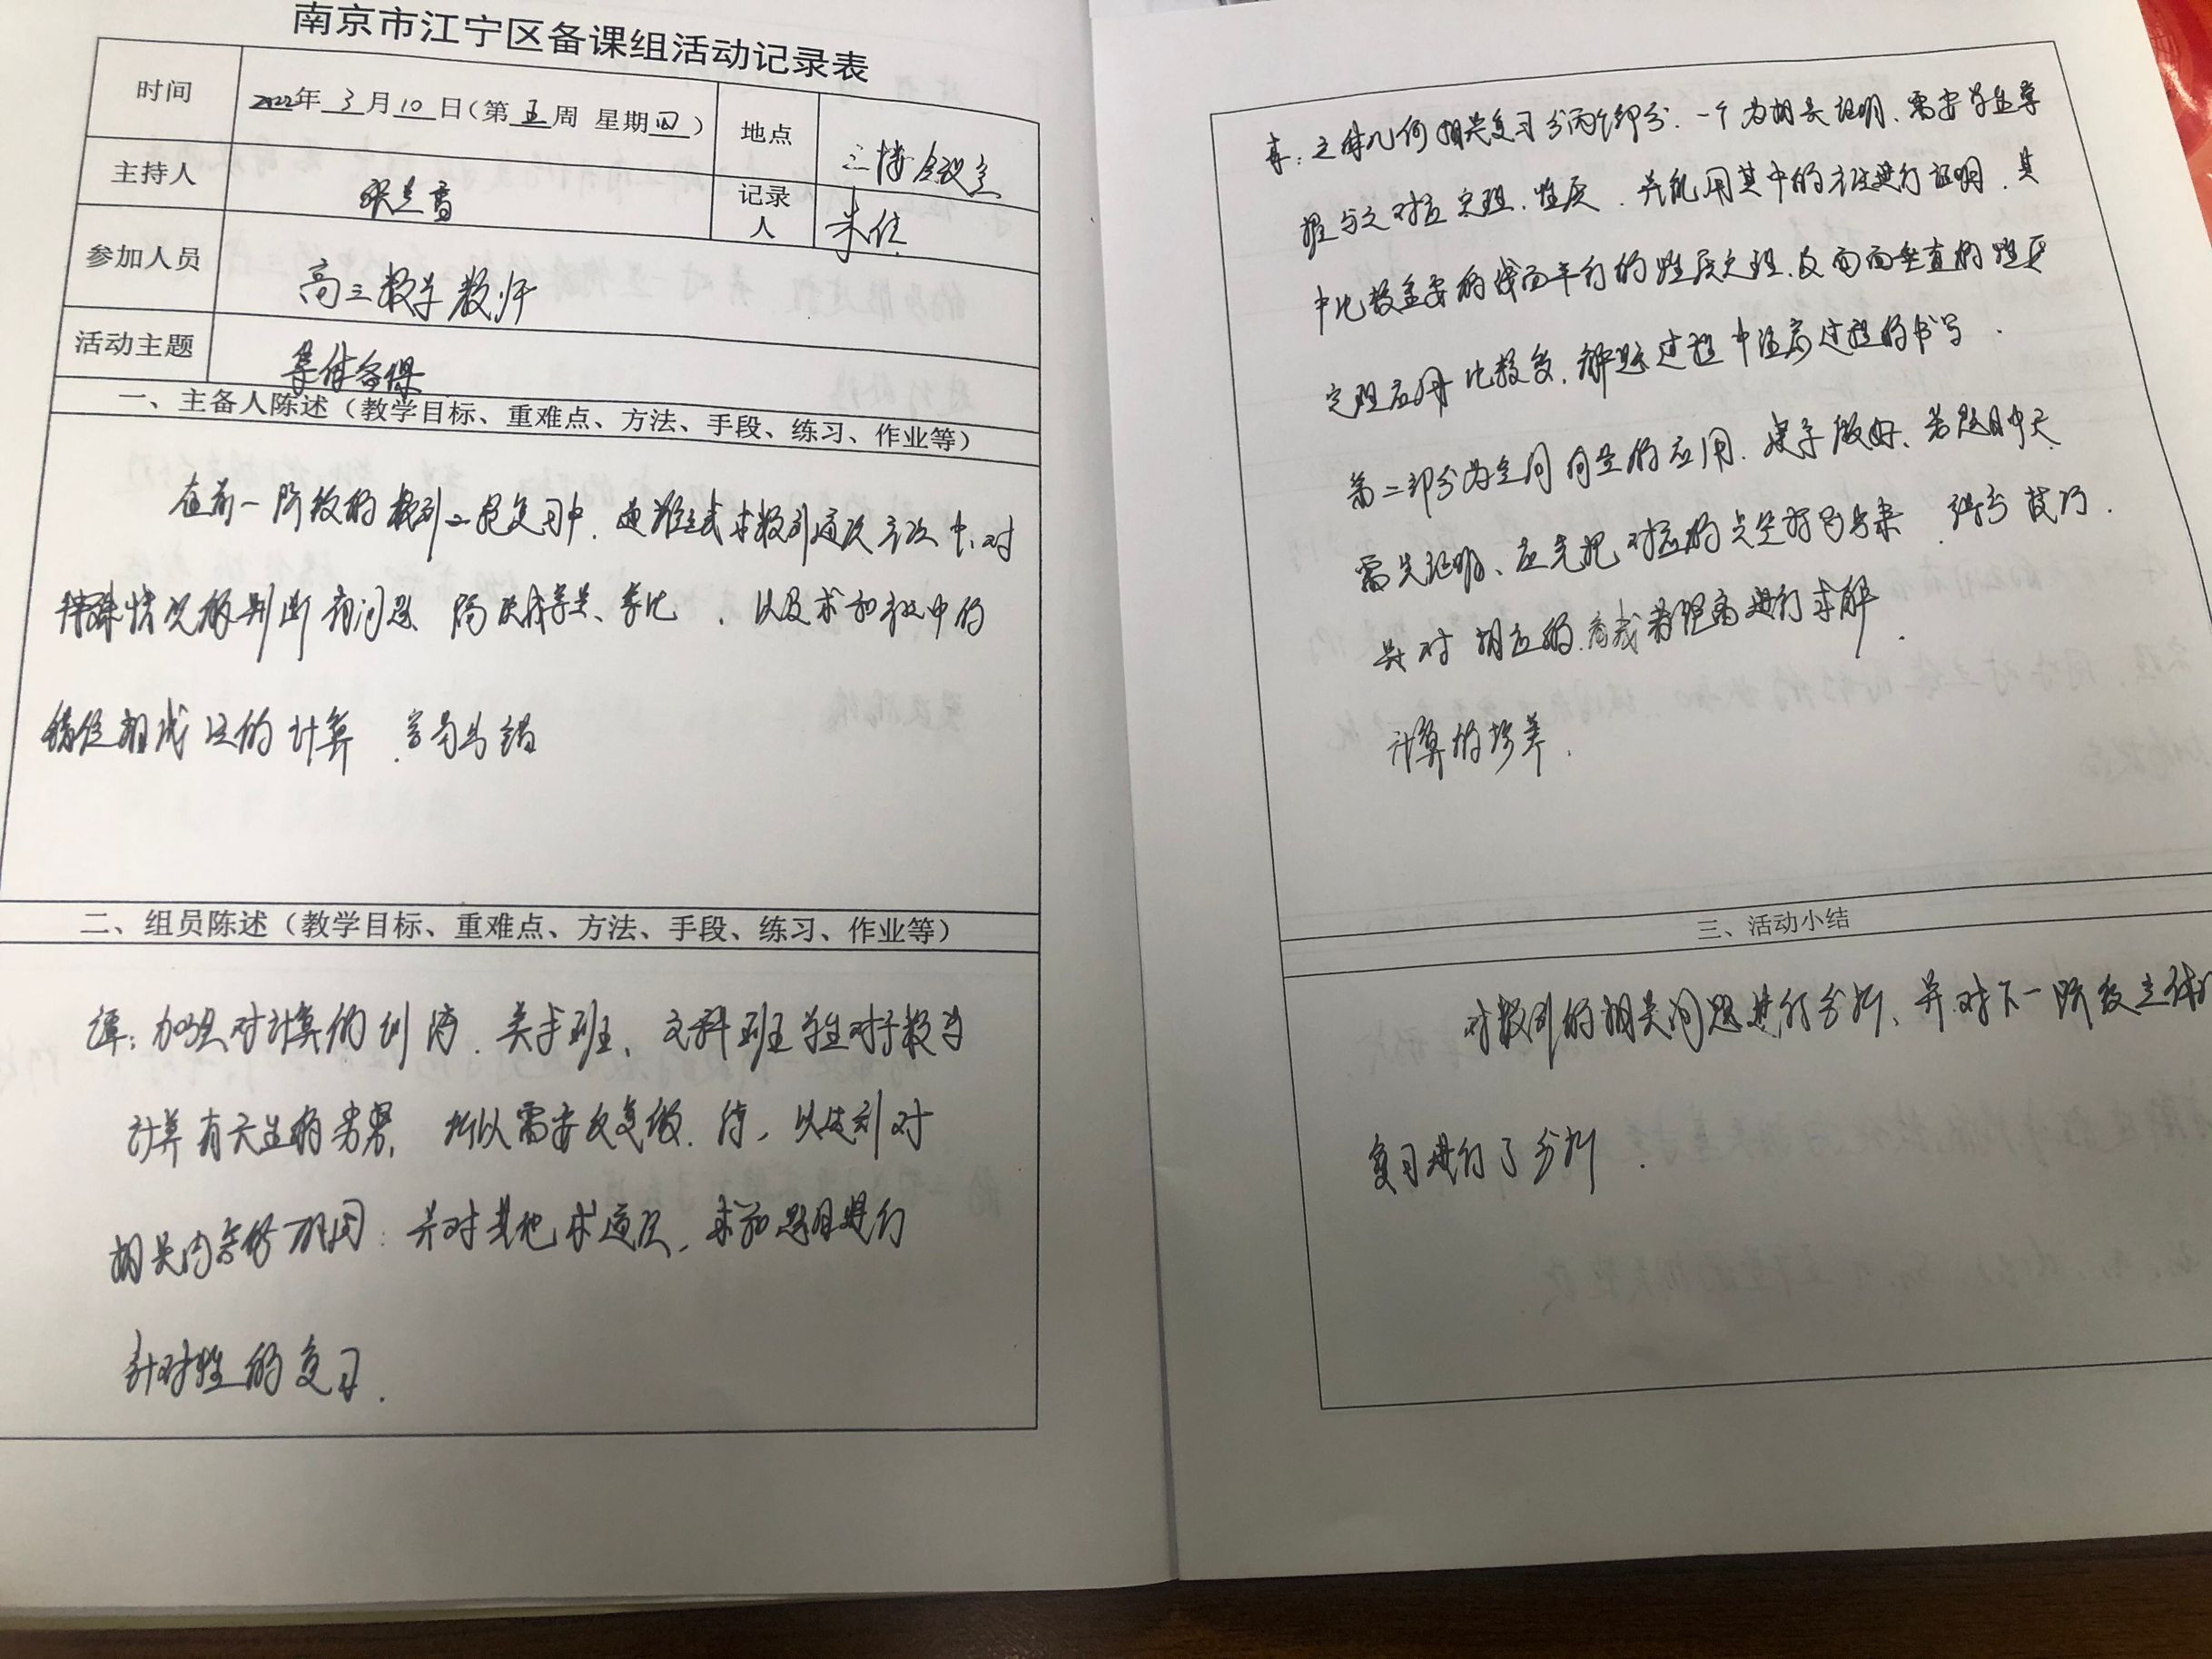 南京市江宁区备课组活动记录表
时间 2022年 3 月 10 日(第 五 周 星期 四 ) 地点 三楼会议室
主持人 记录人 朱佳
参加人员 高三数学教师
活动主题 集体备课
一、主备人陈述（教学目标、重难点、方法、手段、练习、作业等）
在前一阶段的数列二轮复习中，递推式求数列通项方法中，对
特殊情况的判断有问题 隔项成等差、等比，以及求和法中的
错位相减法的计算，容易出错
二、组员陈述（教学目标、重难点、方法、手段、练习、作业等）
谭：加强对计算的训练，美术班、文科班学生对于数学
计算有天生的劣势，所以需要反复做、练，以达到对
相关内容的巩固；并对其他求通项、求和题目进行
针对性的复习．
立体几何相关复习分两个部分，一个为相关证明，需要学生掌
握与之对应定理、性质，并能用其中的方法进行证明，其
中比较重要的线面平行的性质定理，及面面垂直的性质
定理应用比较多，解题过程中注意过程的书写．
第二部分为空间向量的应用，建系做好，若题目中无
需先证明，应先把对应的点坐标写出来，得分技巧．
并对相应的角或者距离进行求解．
计算的培养．
三、活动小结
对数列的相关问题进行分析，并对下一阶段立体
复习进行了分析．